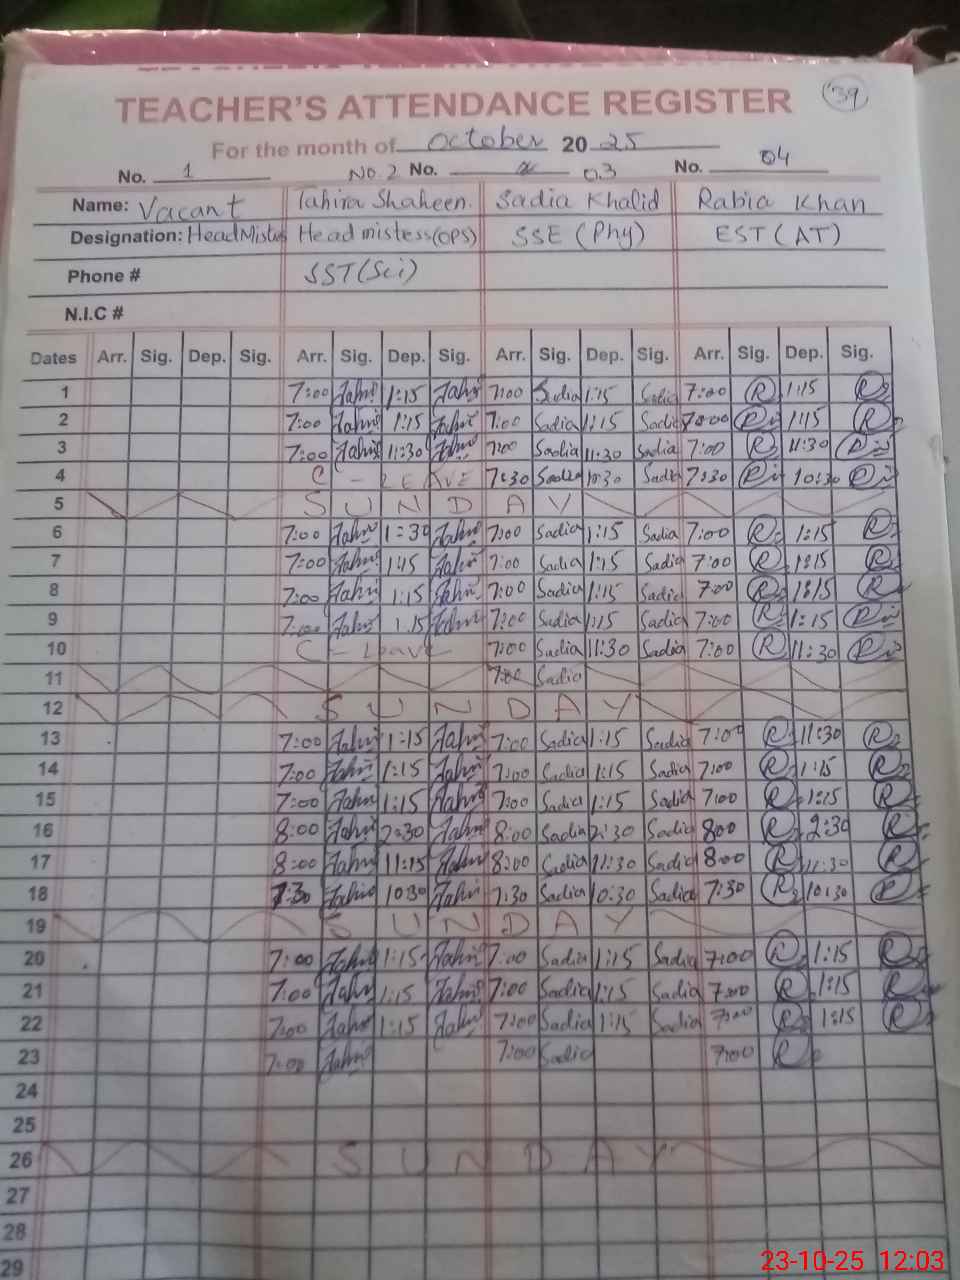 TEACHER'S ATTENDANCE REGISTER 39
For the month of October 20 25
No. 1 NO. 2 No. 03 No. 04
Name: Vacant Tahira Shaheen. Sadia Khalid Rabia Khan
Designation: HeadMistes Head mistess(OPS) SSE (Phy) EST (AT)
Phone # SST (Sci)
N.I.C #
Dates Arr. Sig. Dep. Sig. Arr. Sig. Dep. Sig. Arr. Sig. Dep. Sig. Arr. Sig. Dep. Sig.
1 7:00 1:15 7:00 Sadia 1:15 Sadia 7:00 R 1:15 R
2 7:00 1:15 7:00 Sadia 1:15 Sadia 7:00 R 1:15 R
3 7:00 11:30 7:00 Sadia 11:30 Sadia 7:00 R 11:30 R
4 C - LEAVE 7:30 Sadia 10:30 Sadia 7:30 R 10:30 R
5 SUNDAY
6 7:00 1:30 7:00 Sadia 1:15 Sadia 7:00 R 1:15 R
7 7:00 1:15 7:00 Sadia 1:15 Sadia 7:00 R 1:15 R
8 7:00 1:15 7:00 Sadia 1:15 Sadia 7:00 R 1:15 R
9 7:00 1.15 7:00 Sadia 1:15 Sadia 7:00 R 1:15 R
10 C - Leave 7:00 Sadia 11:30 Sadia 7:00 R 11:30 R
11 7:00 Sadia
12 SUNDAY
13 7:00 1:15 7:00 Sadia 1:15 Sadia 7:00 R 11:30 R
14 7:00 1:15 7:00 Sadia 1:15 Sadia 7:00 R 1:15 R
15 7:00 1:15 7:00 Sadia 1:15 Sadia 7:00 R 1:15 R
16 8:00 2:30 8:00 Sadia 2:30 Sadia 8:00 R 2:30 R
17 8:00 11:15 8:00 Sadia 11:30 Sadia 8:00 R 11:30 R
18 7:30 10:30 7:30 Sadia 10:30 Sadia 7:30 R 10:30 R
19 SUNDAY
20 7:00 1:15 7:00 Sadia 1:15 Sadia 7:00 R 1:15 R
21 7:00 1:15 7:00 Sadia 1:15 Sadia 7:00 R 1:15 R
22 7:00 1:15 7:00 Sadia 1:15 Sadia 7:00 R 1:15 R
23 7:00 7:00 Sadia 7:00 R
24
25
26 SUNDAY
27
28
29
23-10-25 12:03